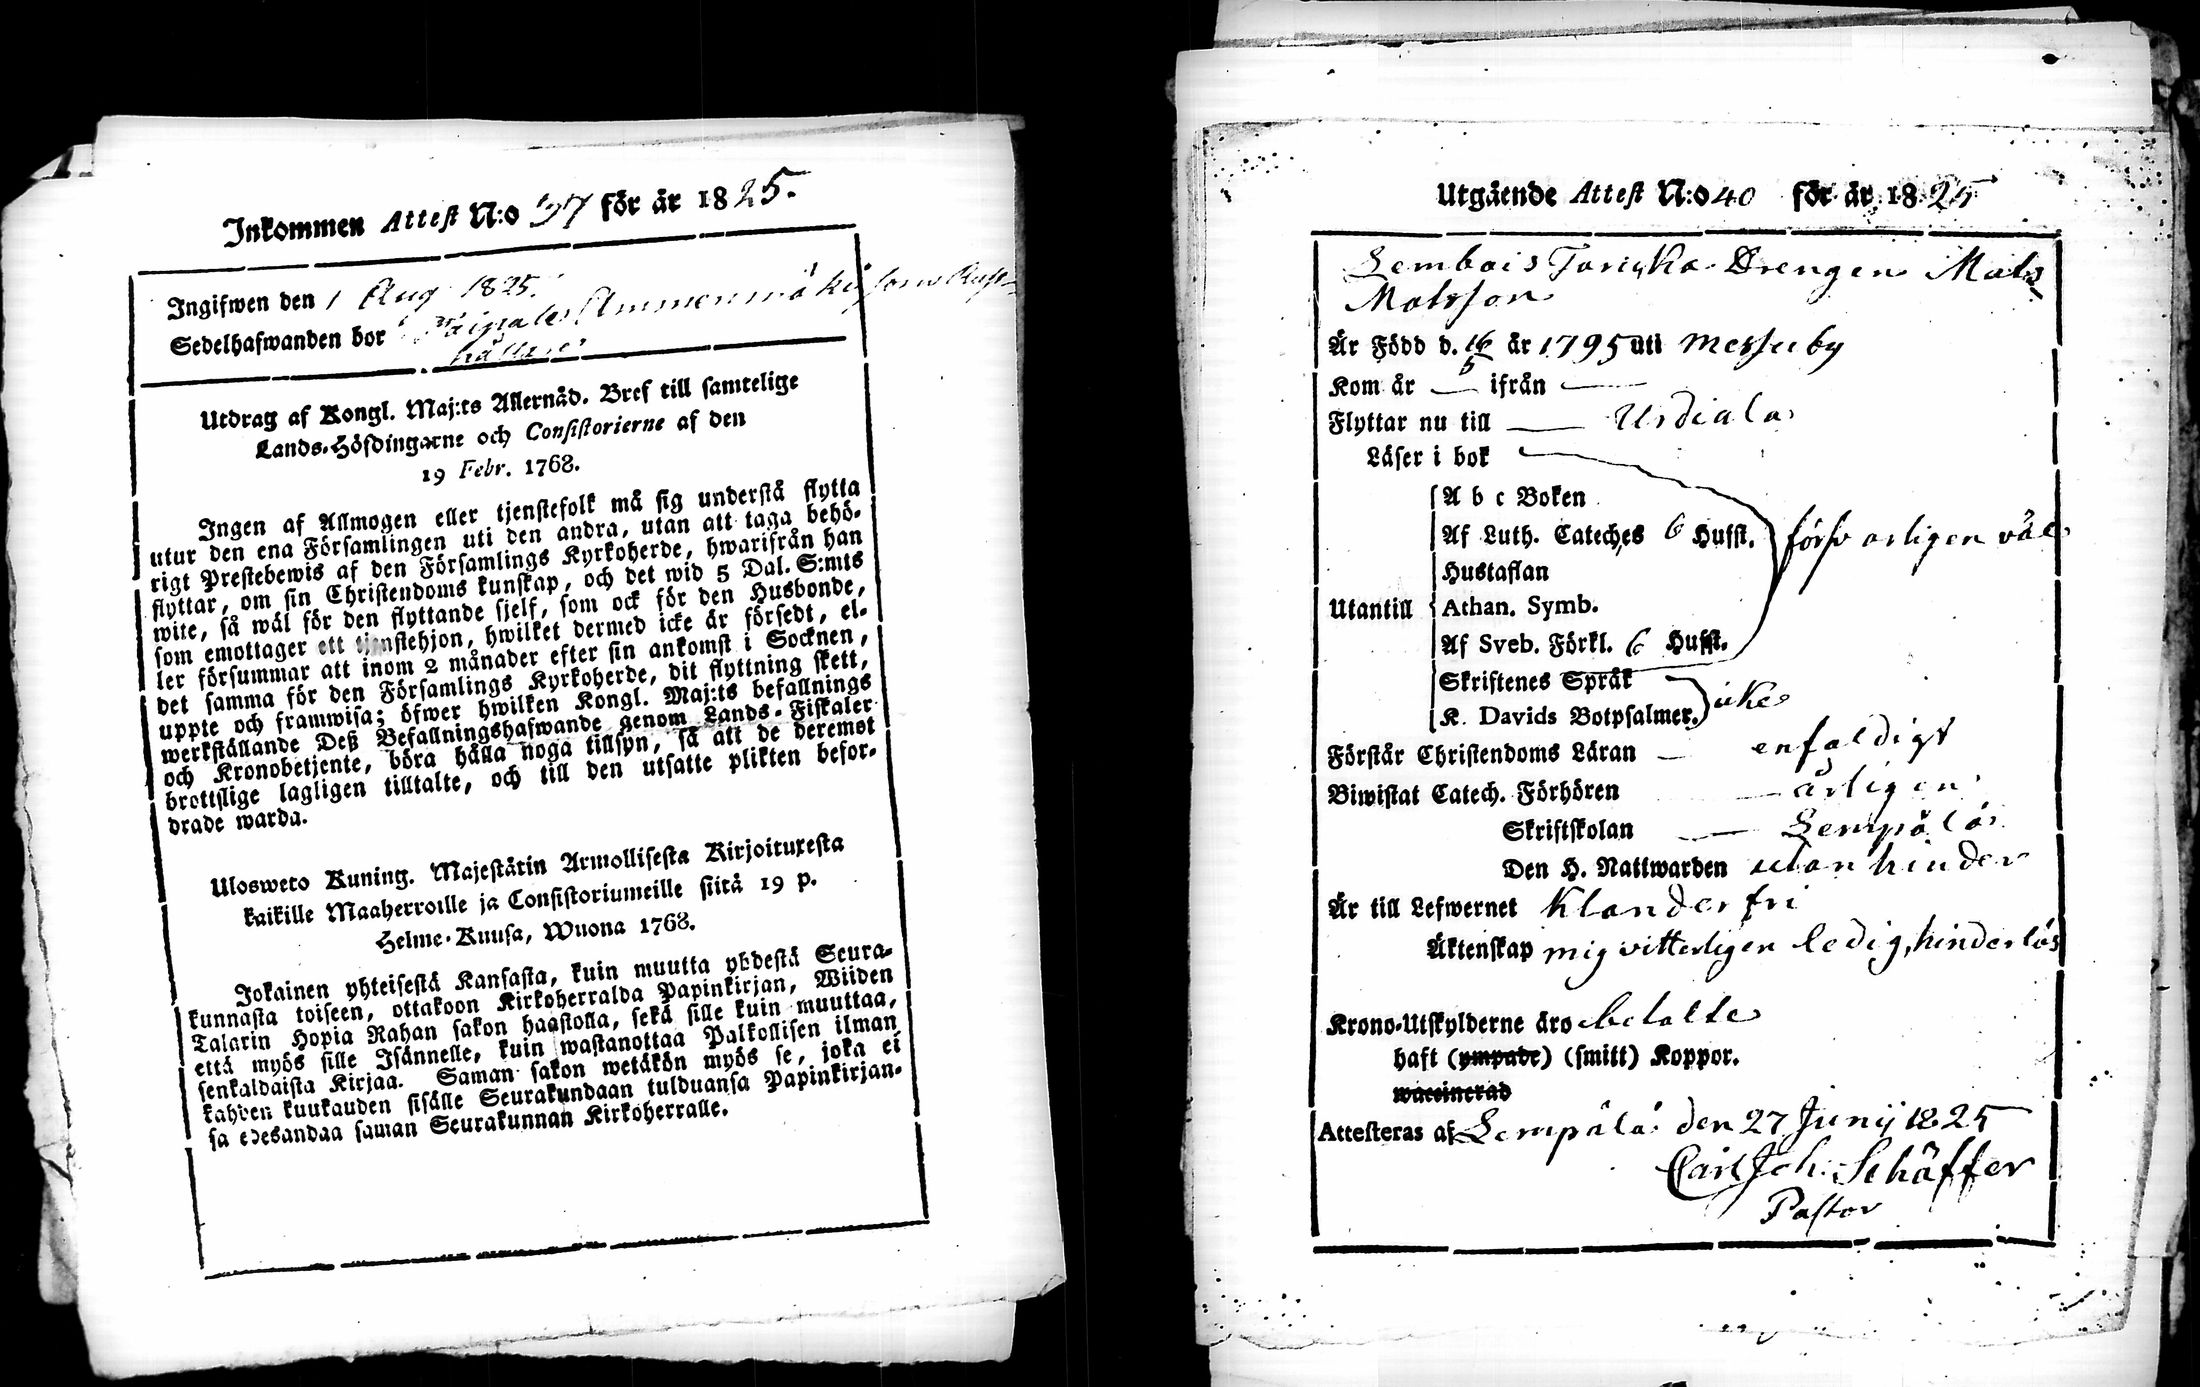 Inkommen Attest N:o 37 för år 1825.
Ingifwen den 1 Aug 1825.
Sedelhafwanden bor Ammenmäki som
hållare
Utdrag af Kongl. Maj:ts Allernåd. Bref till samtelige
Lands-Höfdingarne och Consistorierne af den
19 Febr. 1768.
Ingen af Allmogen eller tjenstefolk må sig understå flytta
utur den ena Församlingen uti den andra, utan att taga behö-
rigt Prestebewis af den Församlings Kyrkoherde, hwarifrån han
flyttar, om sin Christendoms kunskap, och det wid 5 Dal. S:mts
wite, så wäl för den flyttande sjelf, som ock för den Husbonde,
som emottager ett tjenstehjon, hwilket dermed icke är försedt, el-
ler försummar att inom 2 månader efter sin ankomst i Socknen,
det samma för den Församlings Kyrkoherde, dit flyttning skett,
uppte och framwisa; öfwer hwilken Kongl. Maj:ts befallnings
werkställande Deß Befallningshafwande genom Lands-Fiskaler
och Kronobetjente, böra hålla noga tillsyn, så att de deremot
brottslige lagligen tilltalte, och till den utsatte plikten befor-
drade warda.
Ulosweto Kuning. Majestätin Armollisesta Kirjoituxesta
kaikille Maaherroille ja Consistoriumeille siitä 19 p.
Helme-Kuusa, Wuona 1768.
Jokainen yhteisestä Kansasta, kuin muutta yhdestä Seura-
kunnasta toiseen, ottakoon Kirkoherralda Papinkirjan, Wiiden
Talarin Hopia Rahan sakon haastolla, sekä sille kuin muuttaa,
että myös sille Isännelle, kuin wastanottaa Palkollisen ilman
senkaldaista Kirjaa. Saman sakon wetäkön myös se, joka ei
kahden kuukauden sisälle Seurakundaan tulduansa Papinkirjan-
sa edesandaa saman Seurakunnan Kirkoherralle.
Utgående Attest N:o 40 för år 1825
Lembois Drengen Mats
Matsson
Är Född d. 16/5 år 1795 uti Messuby
Kom år — ifrån —
Flyttar nu till — Urdiala
Läser i bok
A b c Boken
Af Luth. Cateches 6 Hufst. försvarligen väl
Hustaflan
Utantill Athan. Symb.
Af Sveb. Förkl. 6 Hufst.
Skriftenes Språk
K. Davids Botpsalmer. icke
Förstår Christendoms Läran — enfaldigt
Biwistat Catech. Förhören — årligen
Skriftskolan — Lempälä
Den H. Nattwarden utan hinder
Är till Lefwernet Klanderfri
Äktenskap mig vitterligen ledig, hinderlös
Krono-Utskylderne äro betalte
haft (ympade) (smitt) Koppor.
waccinerad
Attesteras af Lempälä den 27 Junij 1825
Carl Joh. Schäffer
Pastor